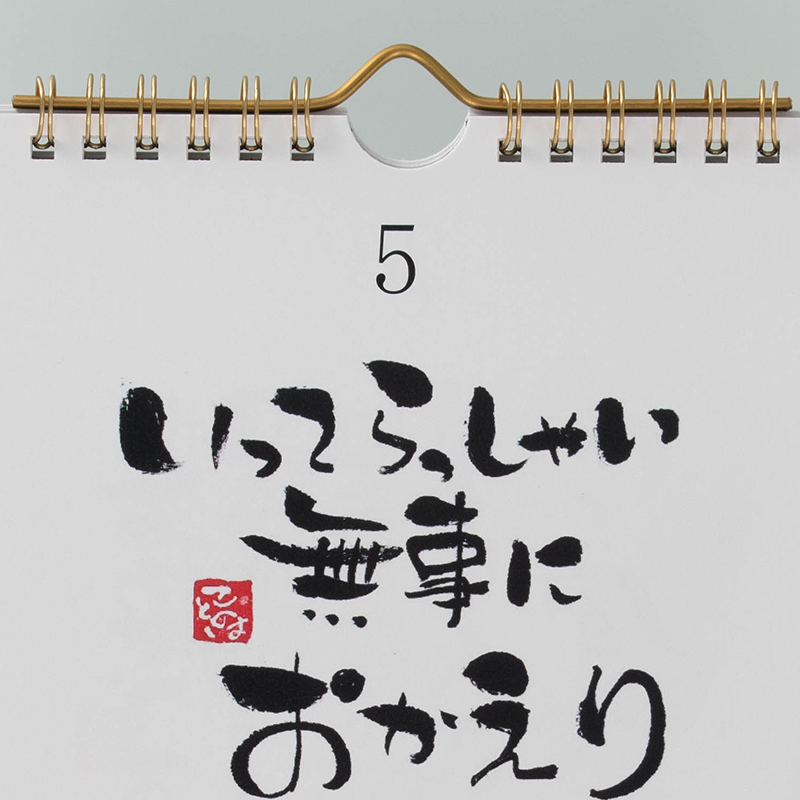 5
いってらっしゃい
無事に
ことのは
おかえり